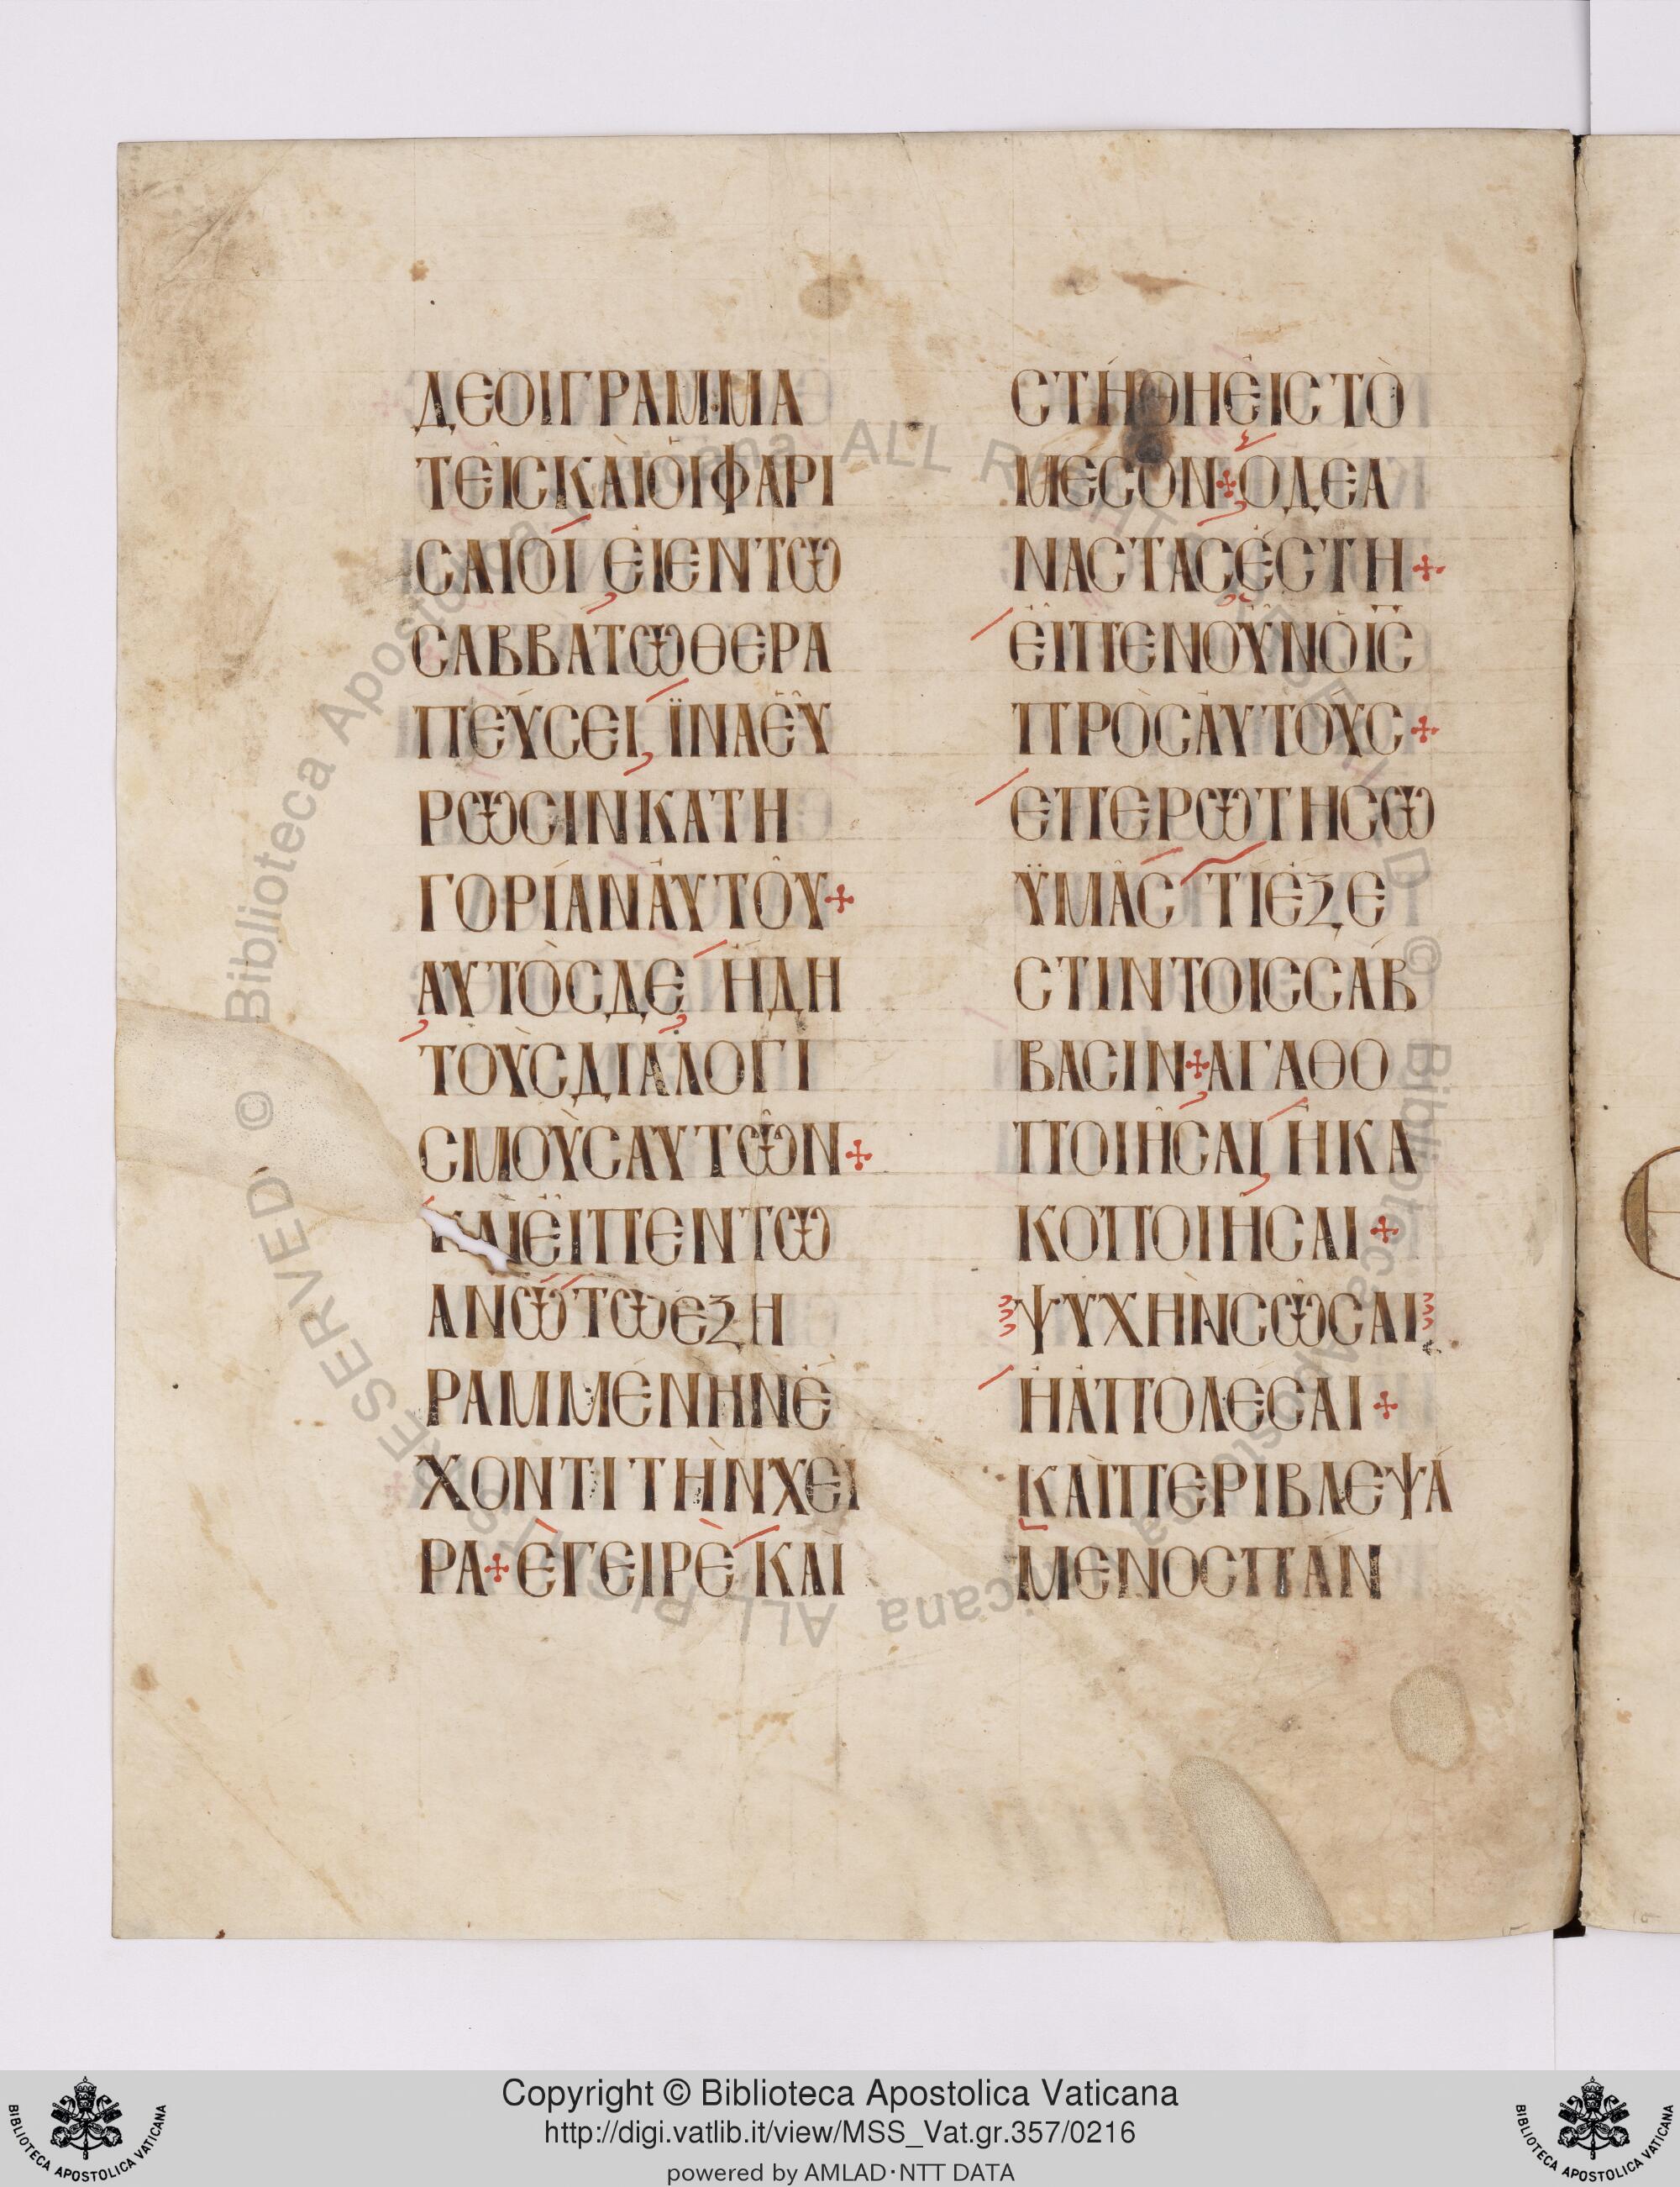 ΔΕΟΙΓΡΑΜΜΑ
ΤΕΙ̂ϹΚΑῚΟἹΦΑΡΙ
ϹΑΙΟΙ ΕἸΕΝΤΩ
ϹΑΒΒΑΤΩΘΕΡΑ
ΠΕΎϹΕΙ, ΪΝΑΕΥ
ΡΩϹΙΝΚΑΤΗ
ΓΟΡΊΑΝΑΥΤΟΥ+
ΑΥΤῸϹΔΕ ΗΔΗ
ΤΟῪϹΔΙΑΛΟΓΙ
ϹΜΟῪϹΑΥΤΩΝ+
ΚΑῚΕΙΠΕΝΤΩ
ΑΝΩΤΩΕΞΗ
ΡΑΜΜΈΝΗΝΕ
ΧΟΝΤΙΤῊΝΧΕΙ
ΡΑ+ΕΓΕΙΡΕ ΚΑΙ
ϹΤΗΘΗΕΙϹΤῸ
ΜΕϹΟΝ+ΟΔΕΑ
ΝΑϹΤΑϹΕϹΤΗ+
ΕΙΠΕΝΟΥΝΟΙ̅Ϲ̅
ΠΡῸϹΑΥΤΟΥϹ+
ΕΠΕΡΩΤΗϹΩ
ΫΜΑϹ ΤΙΕΞΕ
ϹΤΙΝΤΟΙϹϹΑΒ
ΒΑϹΙΝ+ΑΓΑΘΟ
ΠΟΙΗϹΑΙ, ΗΚΑ
ΚΟΠΟΙΗϹΑΙ+
ΨΥΧῊΝϹΩϹΑΙ
ΗΑΠΟΛΕϹΑΙ+
ΚΑῚΠΕΡΙΒΛΕΨΆ
ΜΕΝΟϹΠΑΝ
© Biblioteca Apostolica Vaticana ALL RIGHTS RESERVED
Copyright © Biblioteca Apostolica Vaticana
http://digi.vatlib.it/view/MSS_Vat.gr.357/0216
powered by AMLAD·NTT DATA
BIBLIOTECA APOSTOLICA VATICANA
BIBLIOTECA APOSTOLICA VATICANA